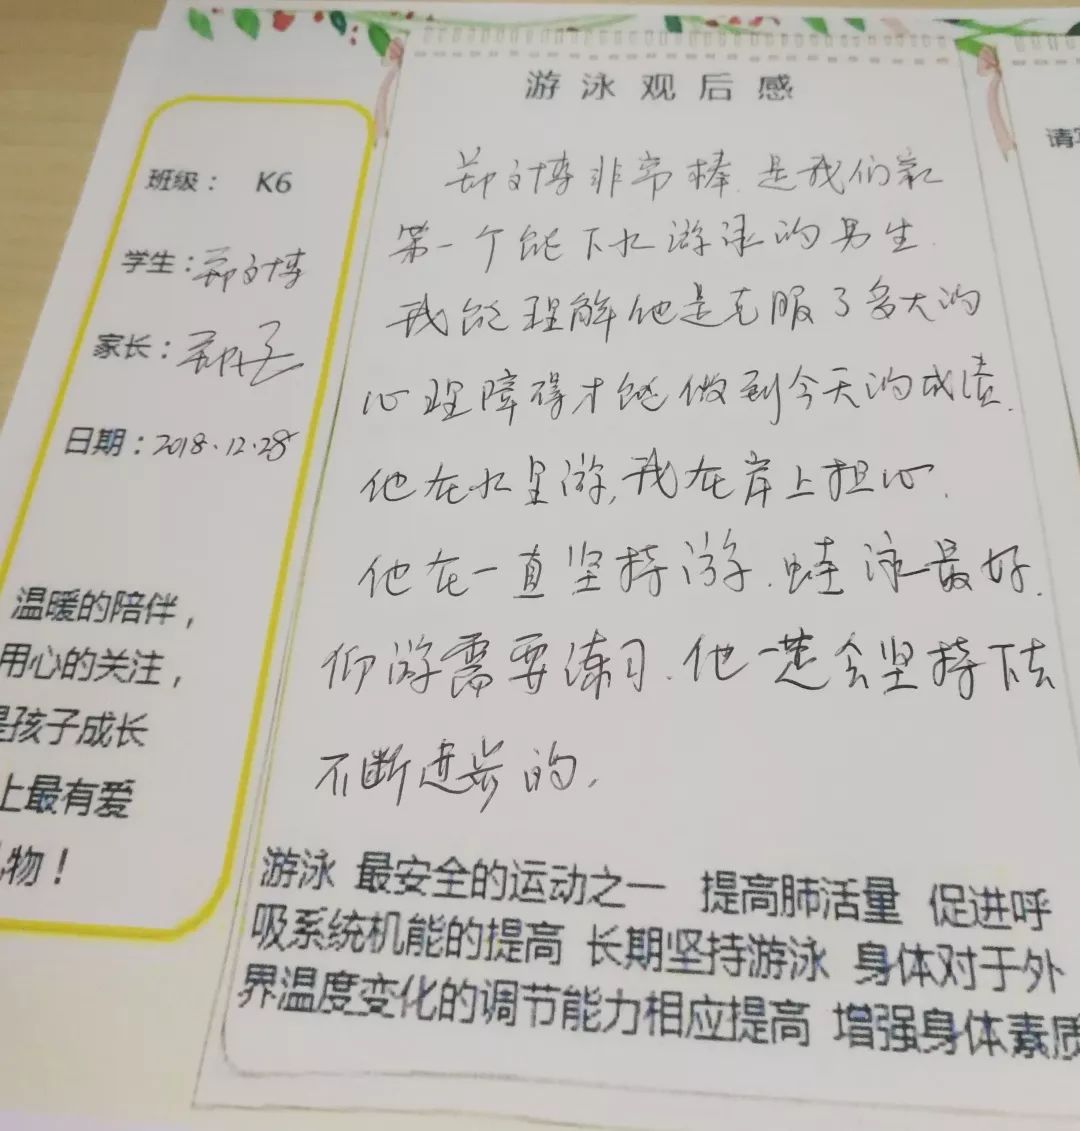 班级： K6
学生：郑文博
家长：
日期：2018.12.28
温暖的陪伴，
用心的关注，
是孩子成长
上最有爱
物！
游泳观后感
郑文博非常棒.是我们家
第一个能下水游泳的男生.
我能理解他是克服了多大的
心理障碍才能做到今天的成绩.
他在水里游,我在岸上担心.
他在一直坚持游.蛙泳最好.
仰游需要练习.他一定会坚持下去
不断进步的.
游泳 最安全的运动之一 提高肺活量 促进呼
吸系统机能的提高 长期坚持游泳 身体对于外
界温度变化的调节能力相应提高 增强身体素质
请写